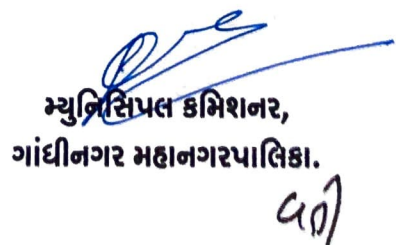 મ્યુનિસિપલ કમિશનર,
ગાંધીનગર મહાનગરપાલિકા.
વતી